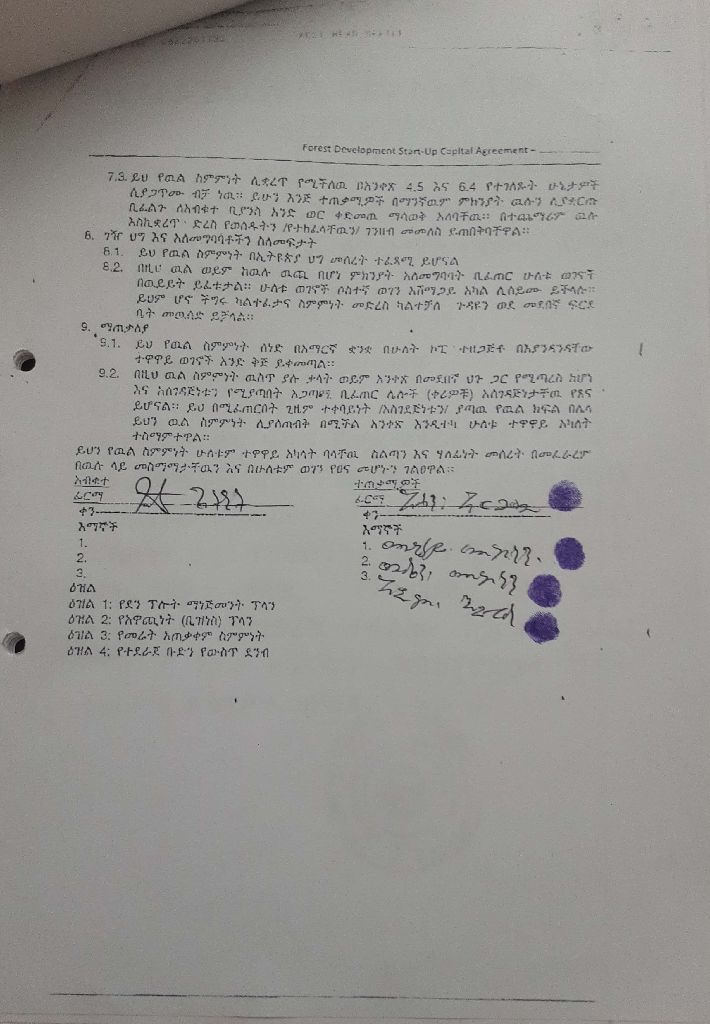 Forest Development Start-Up Capital Agreement –
7.3. ይህ የዉል ስምምነት ሊቋረጥ የሚችለዉ በአንቀጽ 4.5 እና 6.4 የተገለጹት ሁኔታዎች
ሲያጋጥሙ ብቻ ነዉ። ይሁን እንጅ ተጠቃሚዎች በማንኛዉም ምክንያት ዉሉን ሊያቋርጡ
ቢፈልጉ ለአብቁተ ቢያንስ አንድ ወር ቀድመዉ ማሳወቅ አለባቸዉ። በተጨማሪም ዉሉ
እስኪቋረጥ ድረስ የወሰዱትን /የተከፈላቸዉን/ ገንዘብ መመለስ ይጠበቅባቸዋል።
8. ገዥ ህግ እና አለመግባባቶችን ስለመፍታት
8.1. ይህ የዉል ስምምነት በኢትዩጵያ ህግ መሰረት ተፈጻሚ ይሆናል
8.2. በዚህ ዉል ወይም ከዉሉ ዉጪ በሆነ ምክንያት አለመግባባት ቢፈጠር ሁለቱ ወገኖች
በዉይይት ይፈቱታል። ሁለቱ ወገኖች ሶስተኛ ወገን አሸማጋይ አካል ሊሰይሙ ይችላሉ።
ይህም ሆኖ ችግሩ ካልተፈታና ስምምነት መድረስ ካልተቻለ ጉዳዩን ወደ መደበኛ ፍርደ
ቤት መዉሰድ ይቻላል።
9. ማጠቃለያ
9.1. ይህ የዉል ስምምነት ሰነድ በአማርኛ ቋንቋ በሁለት ኮፒ ተዘጋጅቶ በእያንዳንዳቸው
ተዋዋይ ወገኖች አንድ ቅጅ ይቀመጣል።
9.2. በዚህ ዉል ስምምነት ዉስጥ ያሉ ቃላት ወይም አንቀጽ በመደበኛ ህጉ ጋር የሚጣረስ ከሆነ
እና አስገዳጅነቱን የሚያጣበት አጋጣሚ ቢፈጠር ሌሎች (ቀሪዎቹ) አስገዳጅነታቸዉ የጸና
ይሆናል። ይህ በሚፈጠርበት ጊዜም ተቀባይነት /አስገደጅነቱን/ ያጣዉ የዉል ክፍል በሌላ
ይህን ዉል ስምምነት ሊያጠብቅ በሚችል አንቀጽ እንዲተካ ሁለቱ ተዋዋይ አካላት
ተስማምተዋል።
ይህን የዉል ስምምነት ሁለቱም ተዋዋይ አካላት ባላቸዉ ስልጣን እና ሃላፊነት መሰረት በመፈራረም
በዉሉ ላይ መስማማታቸዉን እና በሁለቱም ወገን የፀና መሆኑን ገልፀዋል።
አብቁተ
ፊርማ
ቀን
እማኞች
1.
2.
3.
ተጠቃሚዎች
ፊርማ
ቀን
እማኞች
1.
2.
3.
ዕዝል
ዕዝል 1: የደን ፕሎት ማነጅመንት ፕላን
ዕዝል 2: የአዋጪነት (ቢዝነስ) ፕላን
ዕዝል 3: የመሬት አጠቃቀም ስምምነት
ዕዝል 4: የተደራጀ ቡድን የውስጥ ደንብ